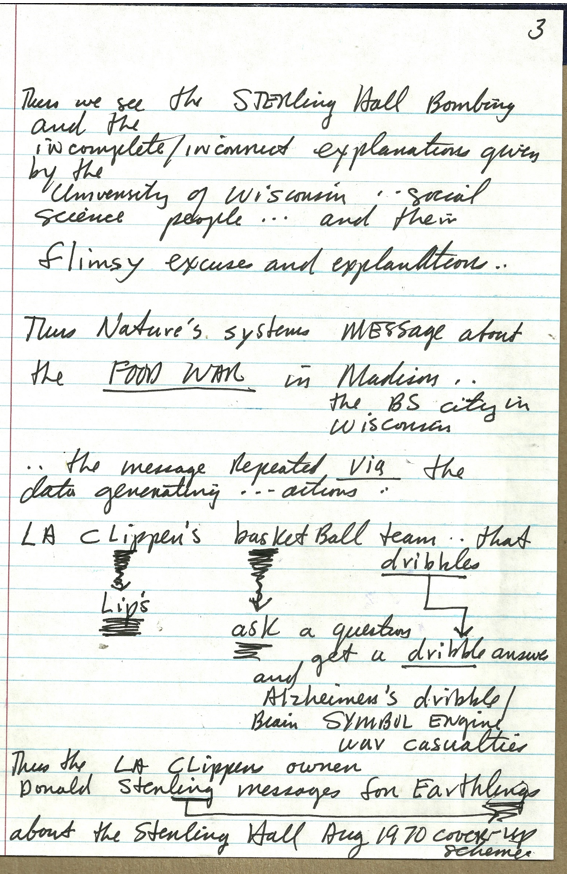 3
Then we see the STERling Hall Bombing
and the
incomplete/incorrect explanations given
by the
University of Wisconsin .. social
science people ... and their
flimsy excuses and explanations ..
Thus Nature's systems MESSage about
the FOOD WAR in Madison ..
the BS city in
Wisconsin
.. the message Repeated via the
data generating ... actions :
LA CLipper's basketBall team .. that
dribbles
Lip's
ask a question
get a dribble answer
and
Alzheimer's dribble/
Brain SYMBOL ENgine
war casualties
Thus the LA CLippers owner
Donald Sterling messages for Earthlings
about the Sterling Hall Aug 1970 cover-up
scheme.